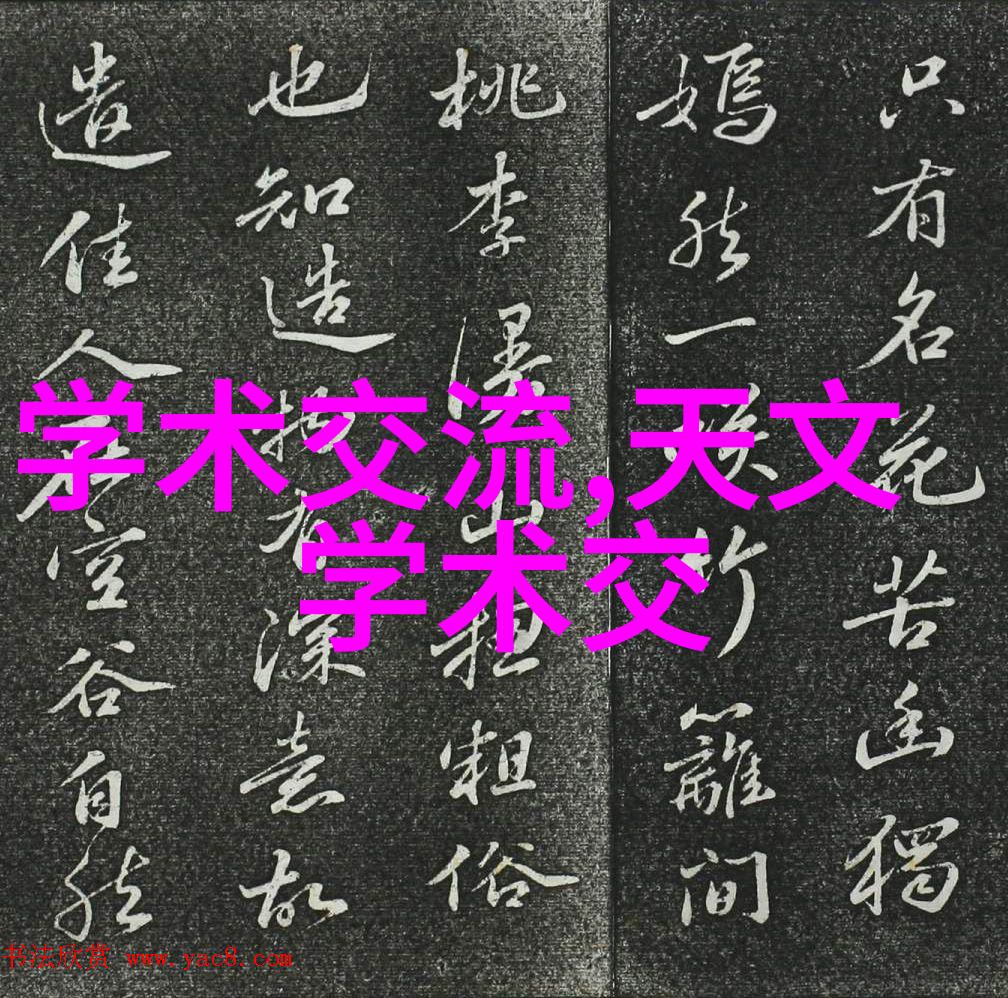 学术交流,天文
学术交
只有名花苦幽獨
嫣然一竹籬間
桃李漫山粗俗
也知造物有深意故
遣佳人在空谷自然
书法欣赏 www.yac8.com